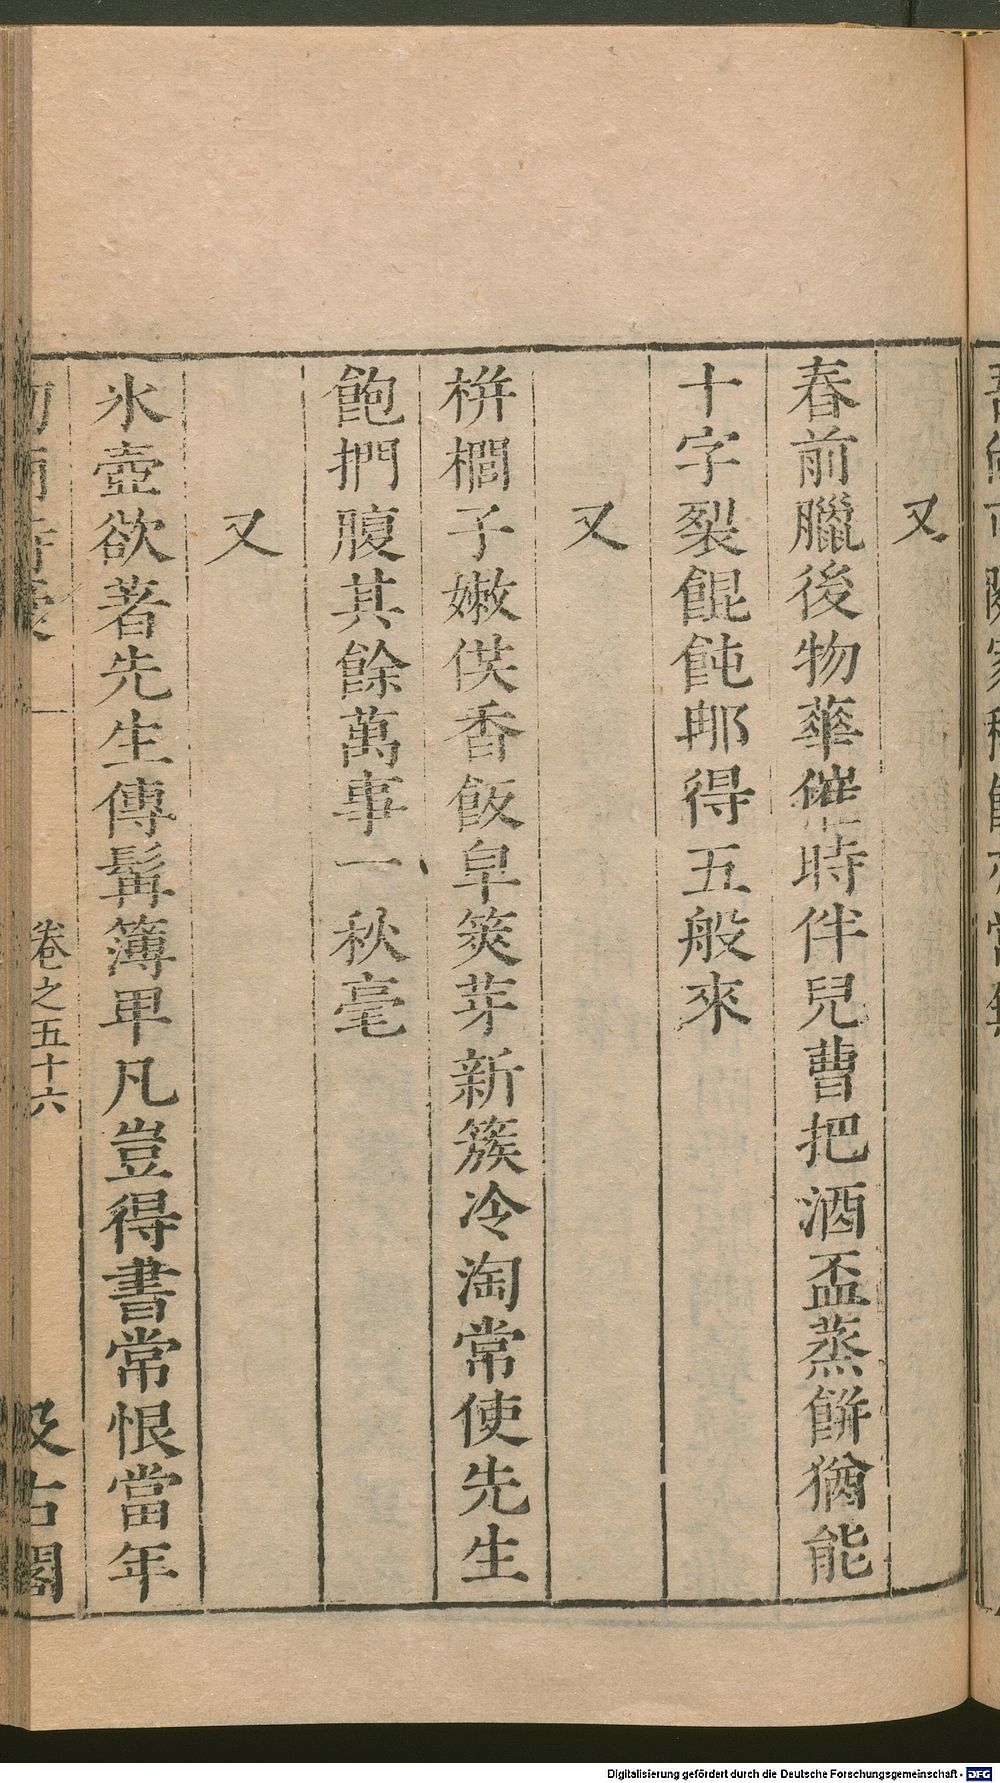 又
春前臘後物華催時伴兒曹把酒盃蒸餅猶能
十字裂餛飩那得五般來
又
栟櫚子嫩供香飯皁筴芽新簇冷淘常使先生
飽捫腹其餘萬事一秋毫
又
氷壺欲著先生傳髯簿畢凡豈得書常恨當年
卷之五十六
汲古閣
Digitalisierung gefördert durch die Deutsche Forschungsgemeinschaft - DFG